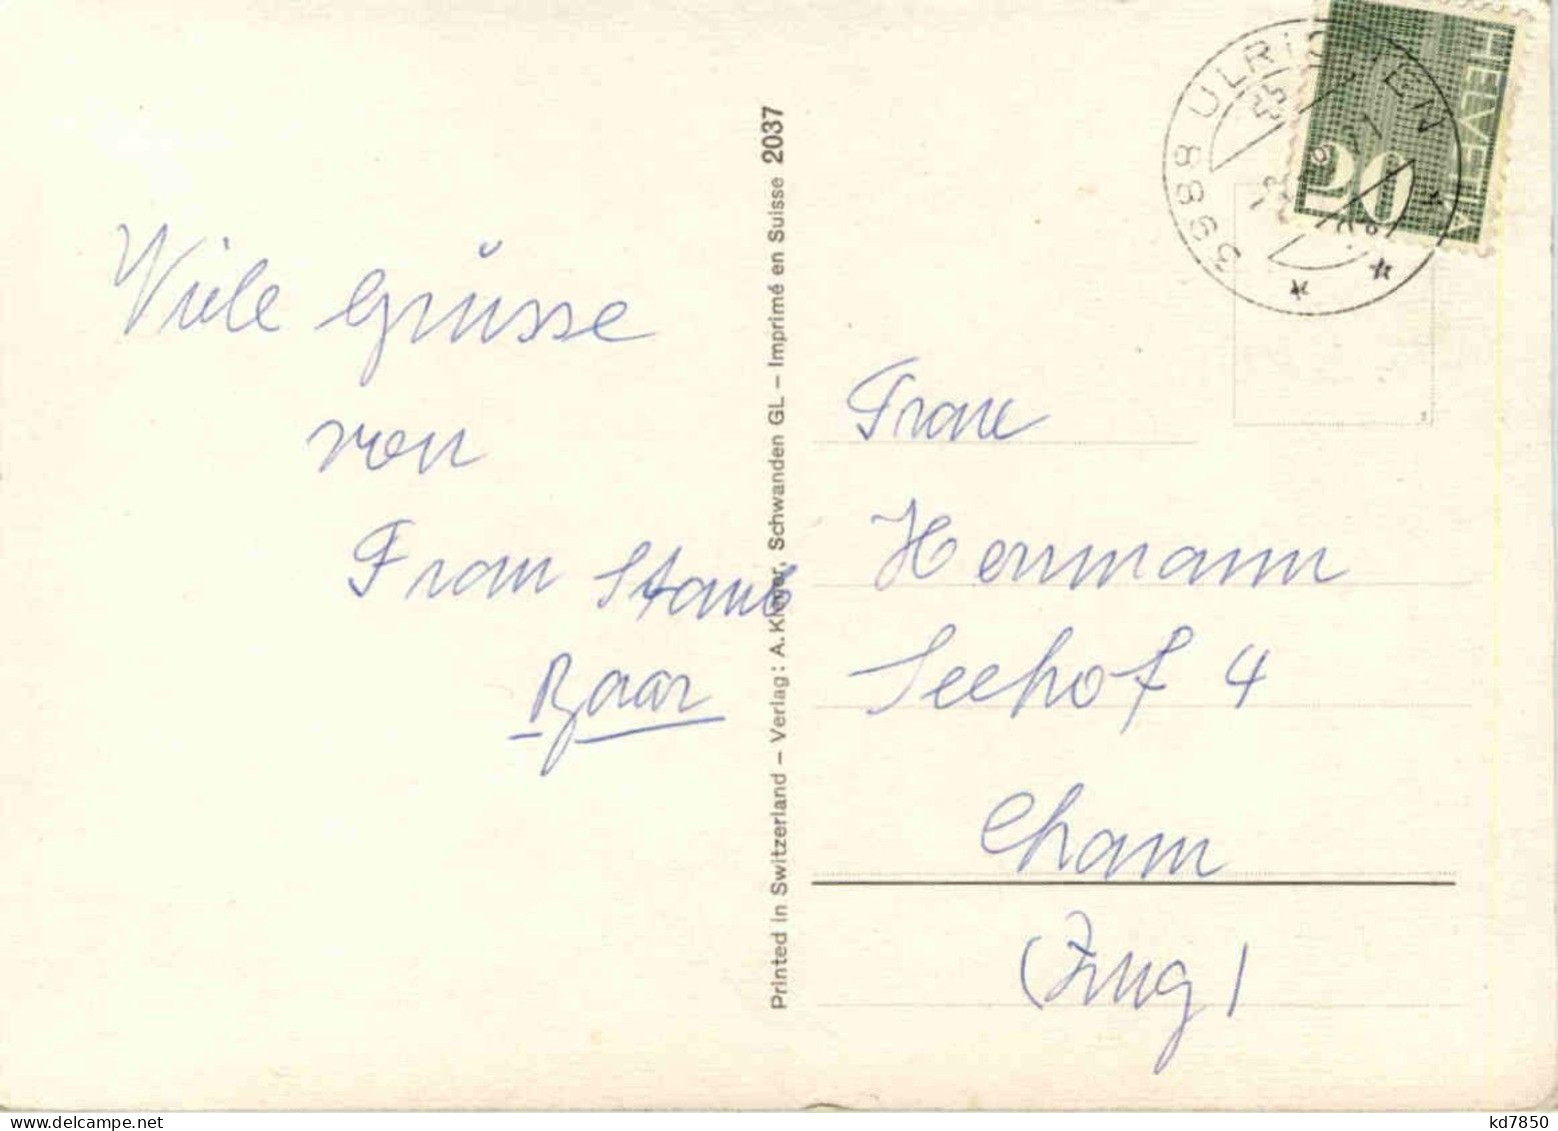 Viele Grüsse
von
Frau Staub
Baar
Printed in Switzerland – Verlag: A. Klager, Schwanden GL – Imprimé en Suisse 2037
3988 ULRICHEN
HELVETIA
20
Frau
Herrmann
Seehof 4
Cham
(Zug)
kd7850